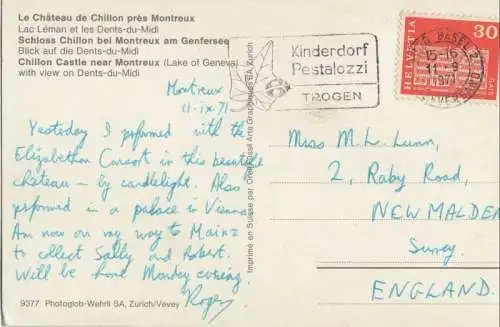 Le Château de Chillon près Montreux
Lac Léman et les Dents-du-Midi
Schloss Chillon bei Montreux am Genfersee
Blick auf die Dents-du-Midi
Chillon Castle near Montreux (Lake of Geneva)
with view on Dents-du-Midi
Montreux
11.ix.71
Yesterday I performed with the
Elizabethan Consort in this beautiful
château - by candlelight. Also
performed in a palace in Vienna
Am now on my way to Mainz
to collect Sally and Robert.
Will be home Monday evening.
Roger
9377 Photoglob-Wehrli SA, Zurich/Vevey
Imprimé en Suisse par Orell Füssli Arts Graphiques SA Zurich
Kinderdorf
Pestalozzi
TROGEN
BASEL
15-16
HELVETIA
30
Miss M.L. Lunn,
2, Raby Road,
NEW MALDEN
Surrey.
ENGLAND.